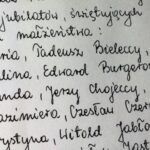 jubilatów, świętujących
małżeństwa:
ria, Tadeusz Bieleccy,
lina, Edward Burgero
anda, Jerzy Chojeccy,
Kazimiera, Czesław Czer
rystyna, Witold Jabło